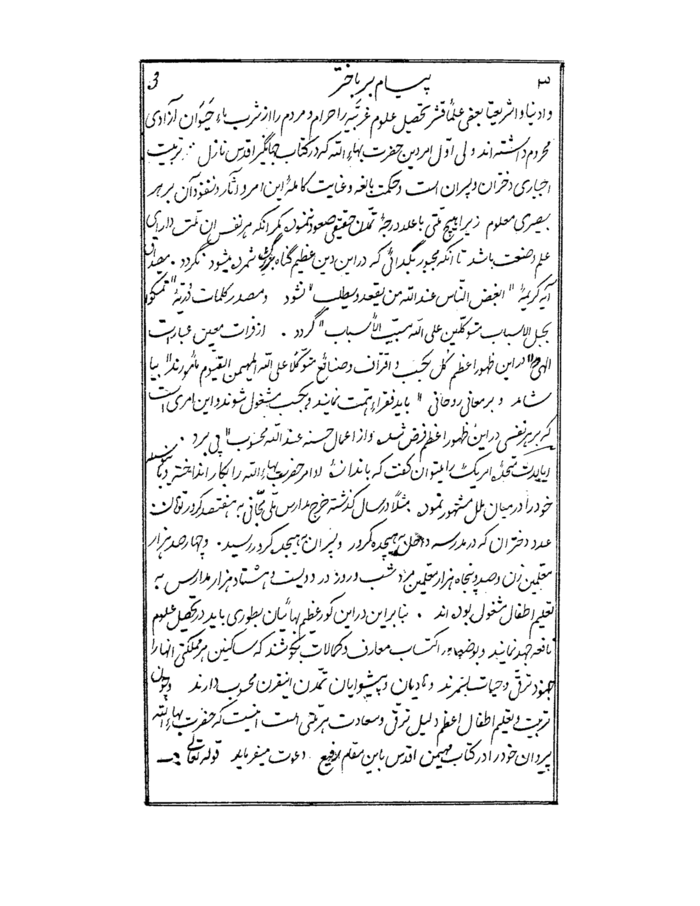 ۳ پیام بر باختر 3
و ادنیا و اشریعتا بعضی علمآء قشر تحصیل علوم غربیّه را حرام و مردم را از شرب ماء حَیَوان آزادی
محروم داشته اند ولی اوّل امر دین حضرت بهاءالله که در کتاب جهانگیر اقدس نازل تربیت
اجباری دختران و پسران است و حکمت بالغه و غایت کاملهٔ این امر و آثار و نفوذ آن بر هر
بصیری معلوم زیرا هیچ ملّتی باعلا درجهٔ تمدّن حقیقی صعود ننموده مگر آنکه هر نفس آن ملّت دارای
علم و صنعت باشد تا آنکه مجبور بگدائی که در این دین عظیم گناه بزرگ شمرده میشود نگردد . مصداق
آیه کریمهٔ "ابغض النّاس عند الله من یقعد و یطلب" نشود و مصدر کلمات درّیّهٔ "تمسّکوا
بحبل الاسباب متوکّلین علی الله مسبّب الأسباب" گردد . از فرات معین عبارت
الهی "در این ظهور اعظم کلّ بکسب و اقتراف و صنایع متوکّلاً علی الله المهیمن القیّوم مأمورند" بیا
شامد و بر معانی روحانی "باید فقراء همّت نمایند و بکسب مشغول شوند و این امری است
که بر هر نفسی در این ظهور اعظم فرض شده و از اعمال حسنه عند الله محسوب" پی برد .
ایالات متّحدهٔ امریک را میتوان گفت که باندازهٔ اوامر حضرت بهاءالله را بکار انداخته و
خود را در میان ملل مشهور نموده مثلاً در سال گذشته خرج مدارس ملّی مجّانی به هفتصد کرور تومان
عدد دختران که در مدرسه داخل به هیجده کرور و پسران به هیجده کرور رسید . و چهار صد هزار
معلّمین زن و صد و پنجاه هزار معلّمین مرد شب و روز در دویست و هشتاد هزار مدارس به
تعلیم اطفال مشغول بوده اند . بنابراین در این کور عظیم بهائیان بطوری باید در تحصیل علوم
نافعه جهد نمایند و اکتساب معارف و کمالات بکوشند که ساکنین هر مملکتی آنها را
عمود ترقّی و حیات بشمرند و هادیان و پیشوایان تمدّن این قرن محسوب دارند و چون
تربیت و تعلیم اطفال اعظم دلیل ترقّی و سعادت هر ملّتی است اینست که حضرت بهاءالله
پیروان خود را در کتاب مهیمن اقدس باین مقام رفیع دعوت میفرماید قوله تعالی